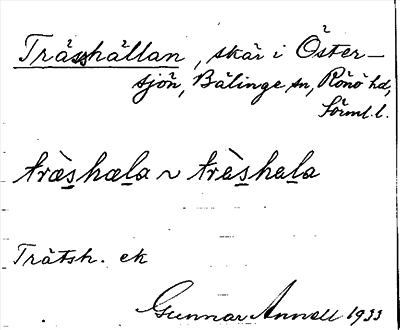 Trässhällan, skär i Öster-
sjön, Bälinge sn, Rönö hd,
Sörml. l.
træ̀shæla ~ trèshala
Trätsh. ek
Gunnar Annell 1933